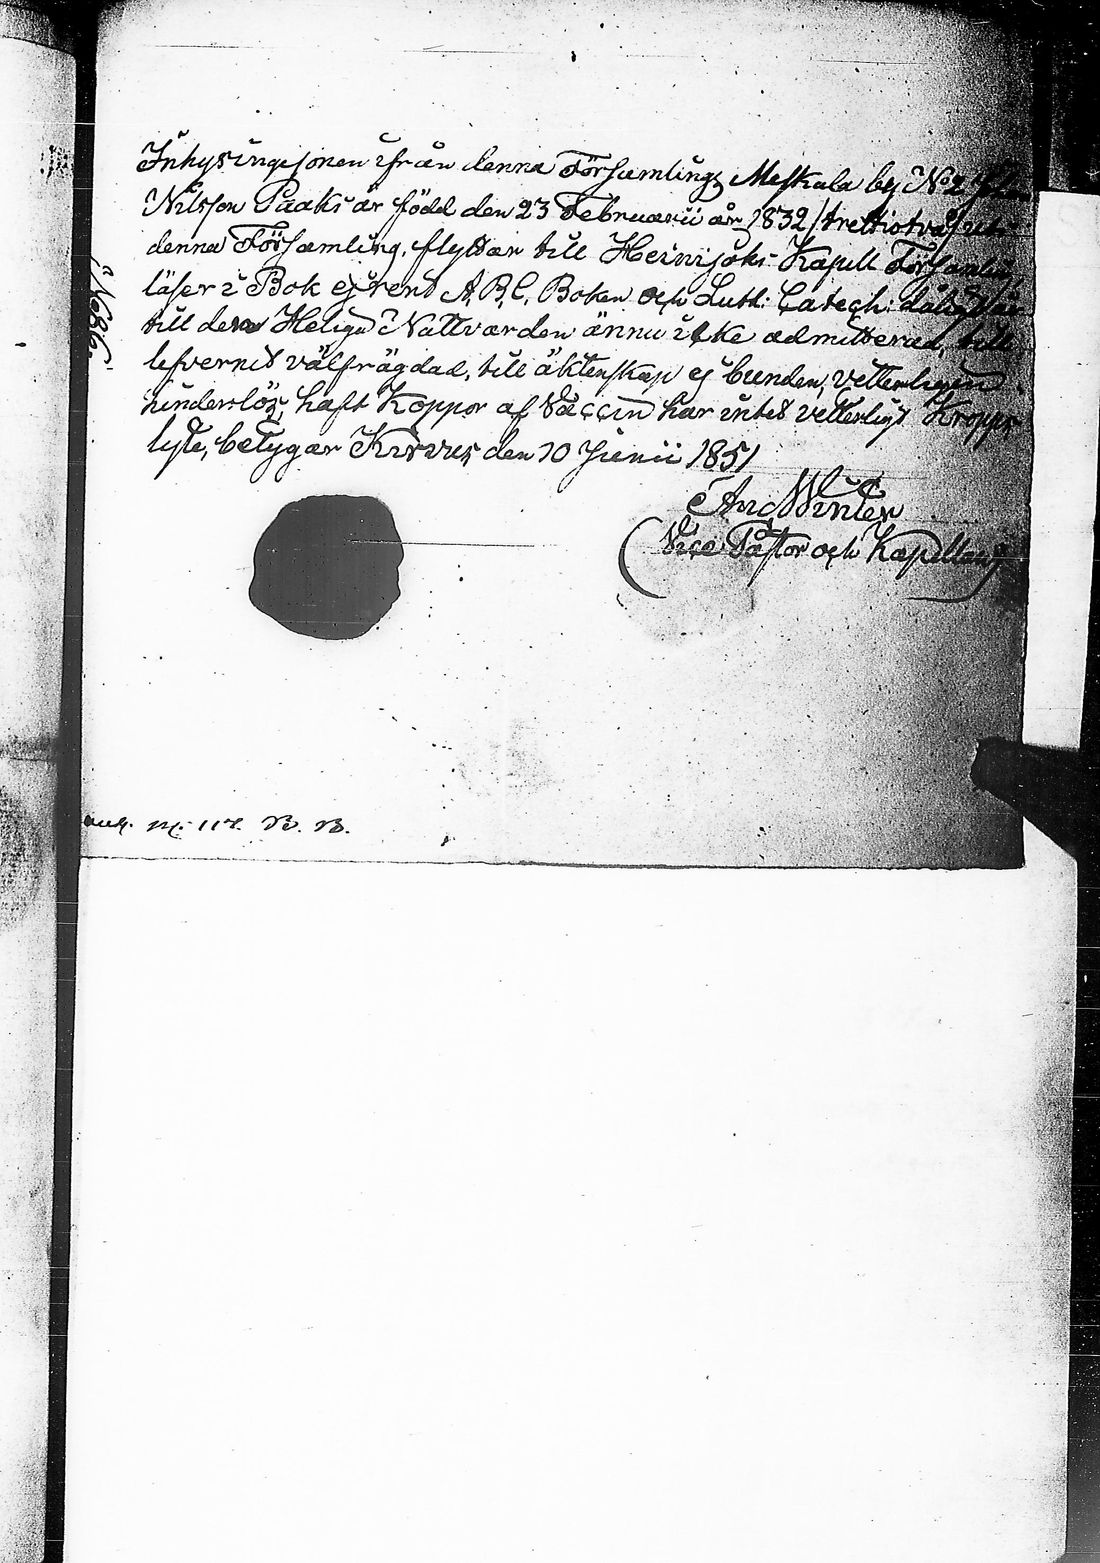 Inhysingesonen ifrån denna Församlings Meskala by No 2
Nilsson Paaki är född den 23 Februarii år 1832 /trettiotvå/ uti
denna Församling, flyttar till Heinijoki Kapell Församling,
läser i Bok ej rent A, B, C, Boken och Luth: Catech: dåligt är
till den Heliga Nattvarden ännu icke admitterad, till
lefvernet välfrägdad, till äktenskap ej bunden, vetterligen
hinderslös, haft Koppor af Vaccin har intet vetterligt Kropps
lyte, betygar Kirvus den 10 Junii 1851
And Winter
(Vice Pastor och Kapellan)
No 86.
pag. 117. B. B.